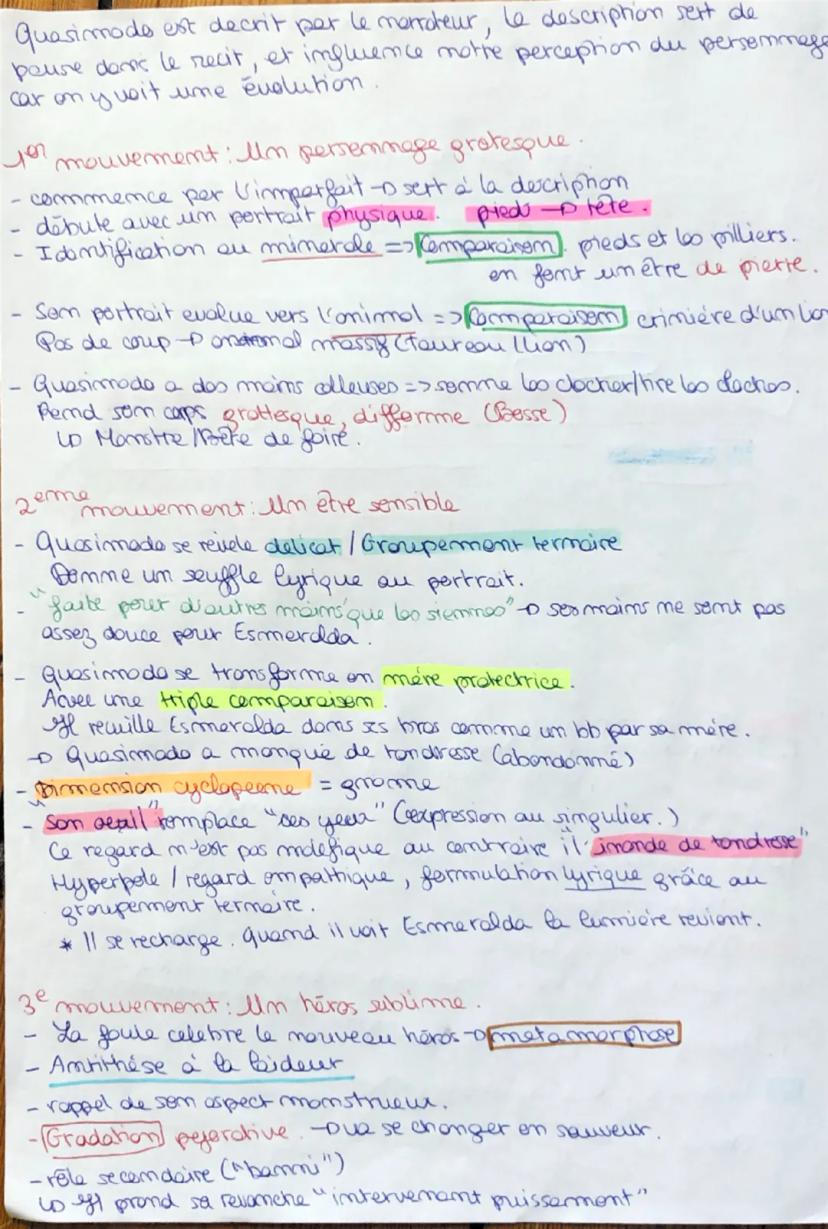 Quasimodo est decrit par le narrateur, la description sert de
pause dans le recit, et influence notre perception du personnage
car on y voit une évolution.
1er mouvement : Un personnage grotesque.
- commence par l'imparfait → sert à la description
- débute avec un portrait physique. pieds → tête.
- Identification au minerale => Comparaison. pieds et les pilliers.
en font un être de pierre.
- Son portrait evolue vers l'animal => Comparaison crinière d'un lion
Pas de coup → animal massif (taureau / lion)
- Quasimodo a des mains calleuses => somme les clocher/tire les cloches.
Rend son corps grottesque, difforme (Bosse)
↳ Monstre / Bête de foire.
2eme mouvement : Un être sensible
- Quasimodo se révele delicat / Groupement ternaire
Donne un souffle lyrique au portrait.
- "faite pour d'autres mains que les siennes" → ses mains ne sont pas
assez douce pour Esmeralda.
- Quasimodo se transforme en mére protectrice.
Avec une triple comparaison.
Il reuille Esmeralda dans ses bras comme un bb par sa mére.
→ Quasimodo a manqué de tendresse (abandonné)
- Dimension cyclopeene = gnome
- "son oeil" remplace "ses yeux" (expression au singulier.)
Ce regard n'est pas maléfique au contraire il "inonde de tendresse"
Hyperbole / regard empathique, formulation lyrique grâce au
groupement ternaire.
* Il se recharge. Quand il voit Esmeralda la lumière revient.
3e mouvement : Un héros sublime.
- La foule celebre le nouveau héros → metamorphose
- Antithése à la laideur
- rappel de son aspect monstrueux.
- Gradation pejorative. → va se changer en sauveur.
- rôle secondaire ("banni")
↳ Il prend sa revanche "intervenant puissament"